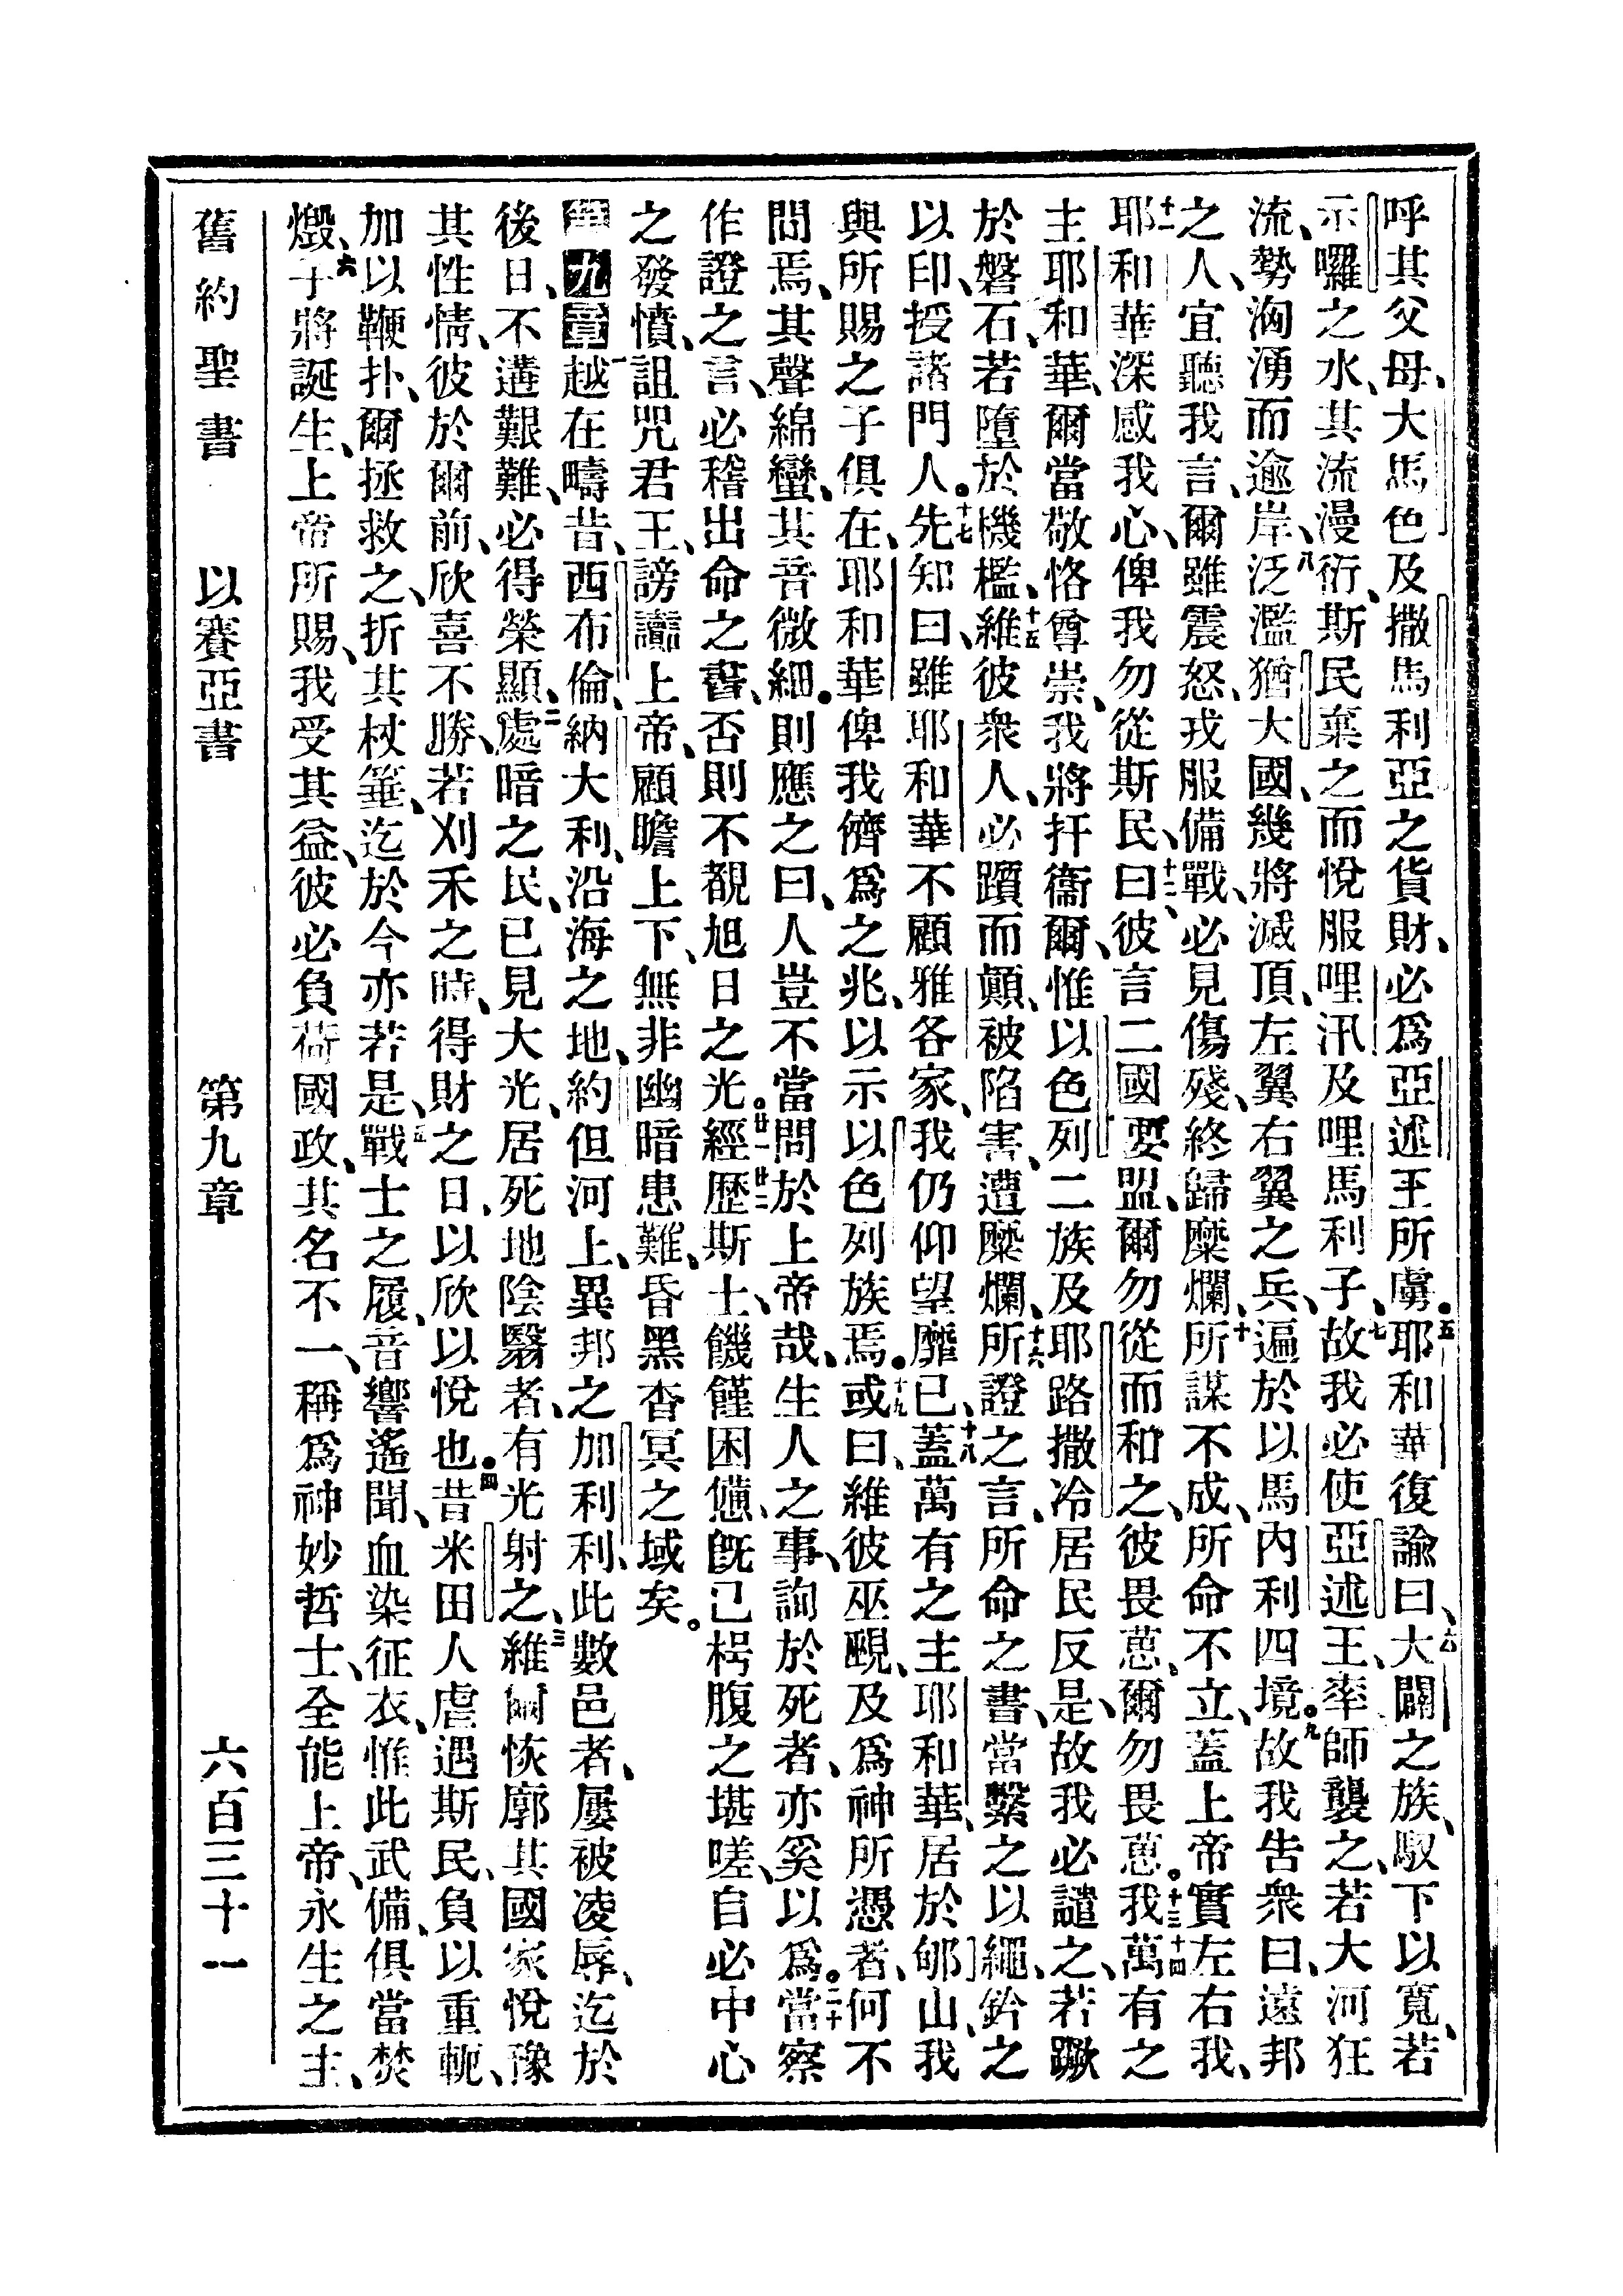 呼其父母、大馬色及撒馬利亞之貨財、必爲亞述王所虜。五耶和華復諭曰、六大闢之族、馭下以寬、若
示囉之水、其流漫衍、斯民棄之、而悅服哩汛及哩馬利子、七故我必使亞述王、率師襲之、若大河狂
流、勢洶湧而逾岸、八泛濫猶大國、幾將滅頂、左翼右翼之兵、遍於以馬內利四境。九故我告衆曰、遠邦
之人、宜聽我言、爾雖震怒、戎服備戰、必見傷殘、終歸糜爛、十所謀不成、所命不立、蓋上帝實左右我、
十一耶和華深感我心、俾我勿從斯民、曰、十二彼言二國要盟、爾勿從而和之、彼畏葸、爾勿畏葸。十三我十四萬有之
主耶和華、爾當敬恪尊崇、我將扞衞爾、惟以色列二族、及耶路撒冷居民反是、故我必譴之、若蹶
於磐石、若墮於機檻、十五維彼衆人、必躓而顛、被陷害、遭糜爛、十六所證之言、所命之書、當繫之以繩、鈐之
以印、授諸門人。十七先知曰、雖耶和華不顧雅各家、我仍仰望靡已、十八蓋萬有之主耶和華、居於郇山、我
與所賜之子俱在、耶和華俾我儕爲之兆、以示以色列族焉。十九或曰、維彼巫覡、及爲神所憑者、何不
問焉、其聲綿蠻、其音微細。則應之曰、人豈不當問於上帝哉、生人之事、詢於死者、亦奚以爲。二十當察
作證之言、必稽出命之書、否則不覩旭日之光。廿一廿二經歷斯土、饑饉困憊、旣已枵腹之堪嗟、自必中心
之發憤、詛咒君王、謗讟上帝、顧瞻上下、無非幽暗患難、昏黑杳冥之域矣。
第九章一越在疇昔、西布倫、納大利、沿海之地、約但河上、異邦之加利利、此數邑者、屢被凌辱、迄於
後日、不遘艱難、必得榮顯、二處暗之民、已見大光、居死地陰翳者、有光射之、三維爾恢廓其國家、悅豫
其性情、彼於爾前、欣喜不勝、若刈禾之時、得財之日、以欣以悅也。四昔米田人虐遇斯民、負以重軛、
加以鞭扑、爾拯救之、折其杖箠、迄於今亦若是、五戰士之履、音響遙聞、血染征衣、惟此武備、俱當焚
燬、六子將誕生、上帝所賜、我受其益、彼必負荷國政、其名不一、稱爲神妙哲士、全能上帝、永生之主、
舊約聖書　以賽亞書　第九章　六百三十一